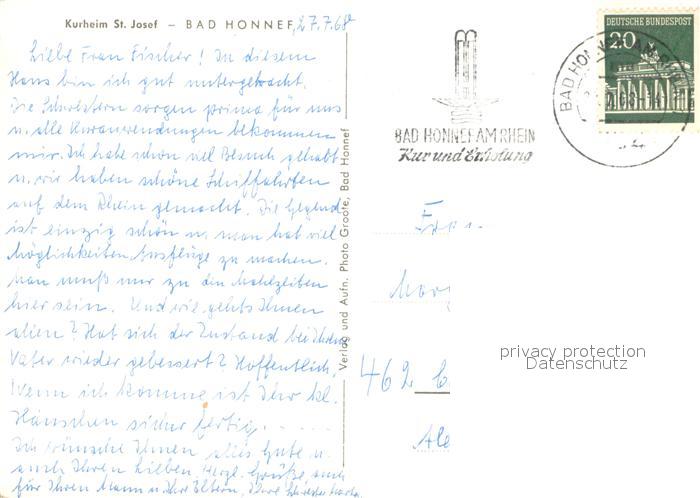 Kurheim St. Josef – BAD HONNEF, 27.7.68
Liebe Frau Fischer! In diesem
Haus bin ich gut untergebracht.
Die Schwestern sorgen prima für uns
u. alle Kuranwendungen bekommen
mir. Ich habe schon viel Besuch gehabt
u. wir haben schöne Schiffahrten
auf dem Rhein gemacht. Die Gegend
ist einzig schön u. man hat viel
Möglichkeiten Ausflüge zu machen.
Man muß nur zu den Mahlzeiten
hier sein. Und wie gehts Ihnen
allen? Hat sich der Zustand bei Ihrem
Vater wieder gebessert? Hoffentlich.
Wenn ich komme ist Ihr kl.
Häuschen sicher fertig. . . . .
Ich wünsche Ihnen alles Gute u.
auch Ihren Lieben. Herzl. Grüße auch
für Ihren Mann u. Ihr Eltern, Ihre Schwester
Verlag und Aufn. Photo Groote, Bad Honnef
DEUTSCHE BUNDESPOST
20
BAD HONNEF AM RHEIN
BAD HONNEF AM RHEIN
Kur und Erholung
462
privacy protection
Datenschutz